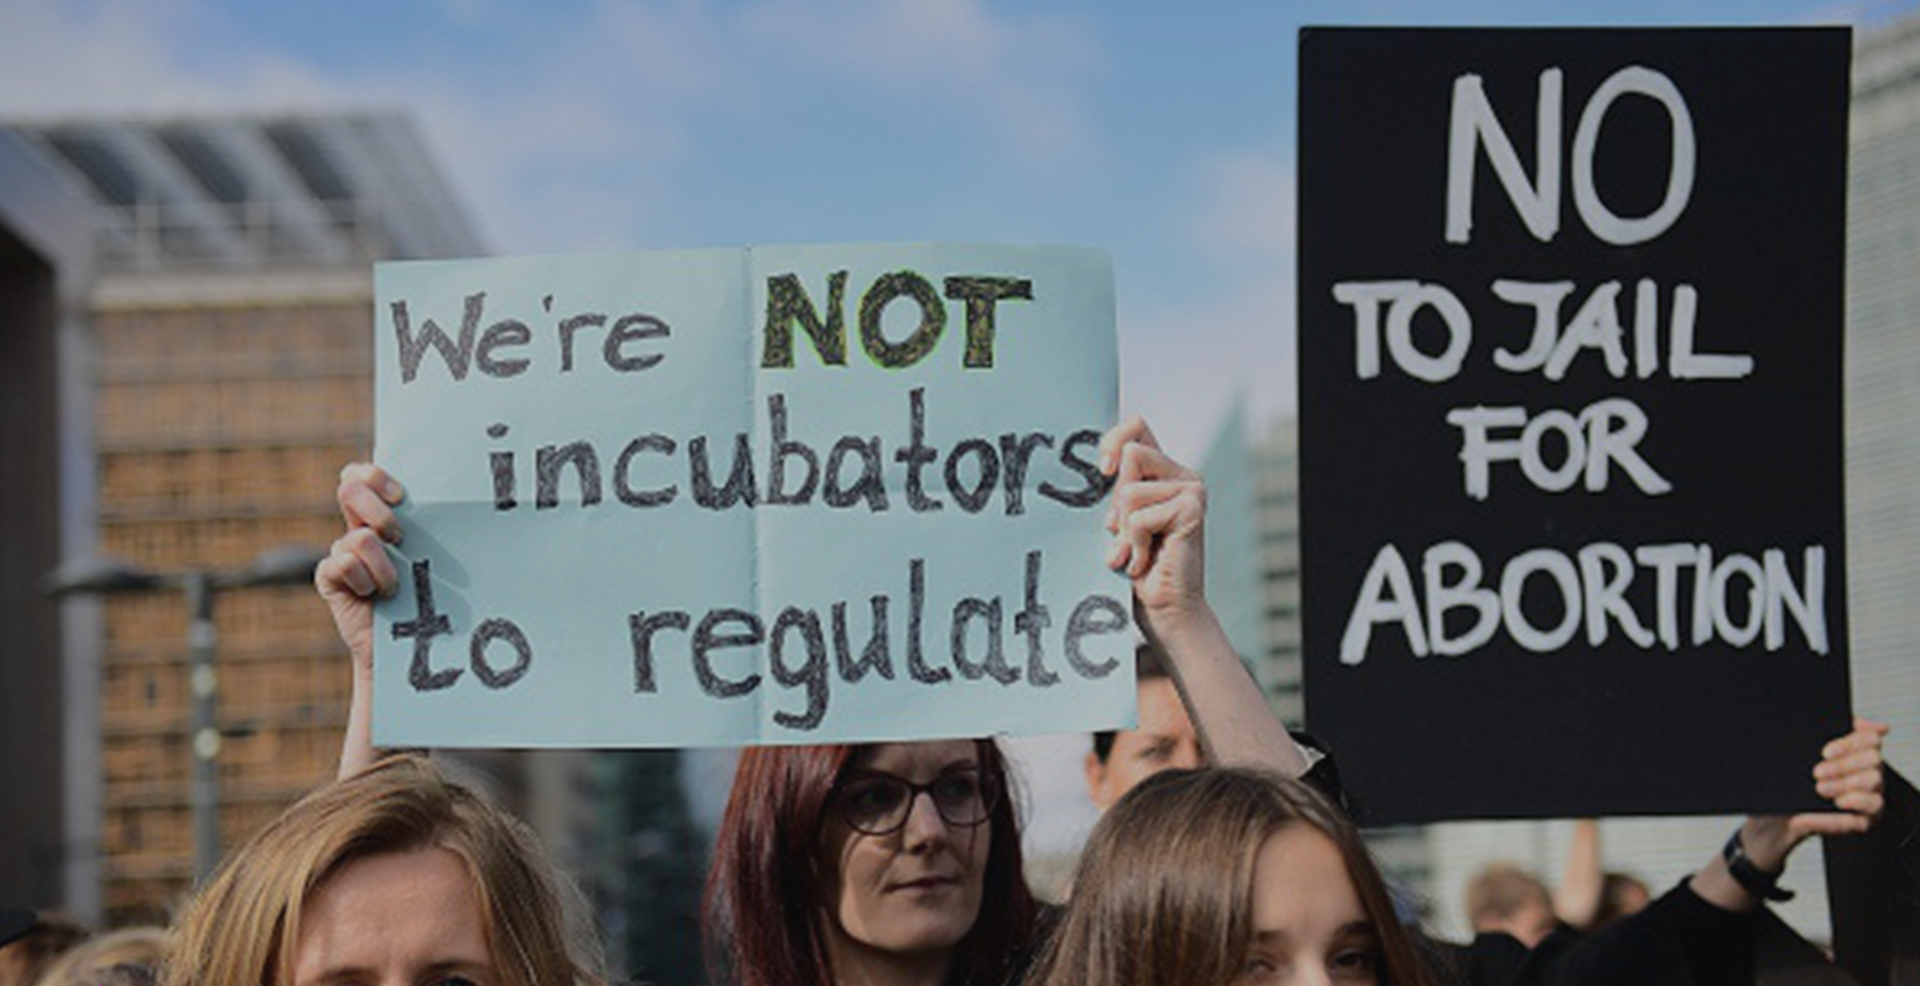 We're NOT
incubators
to regulate
NO
TO JAIL
FOR
ABORTION